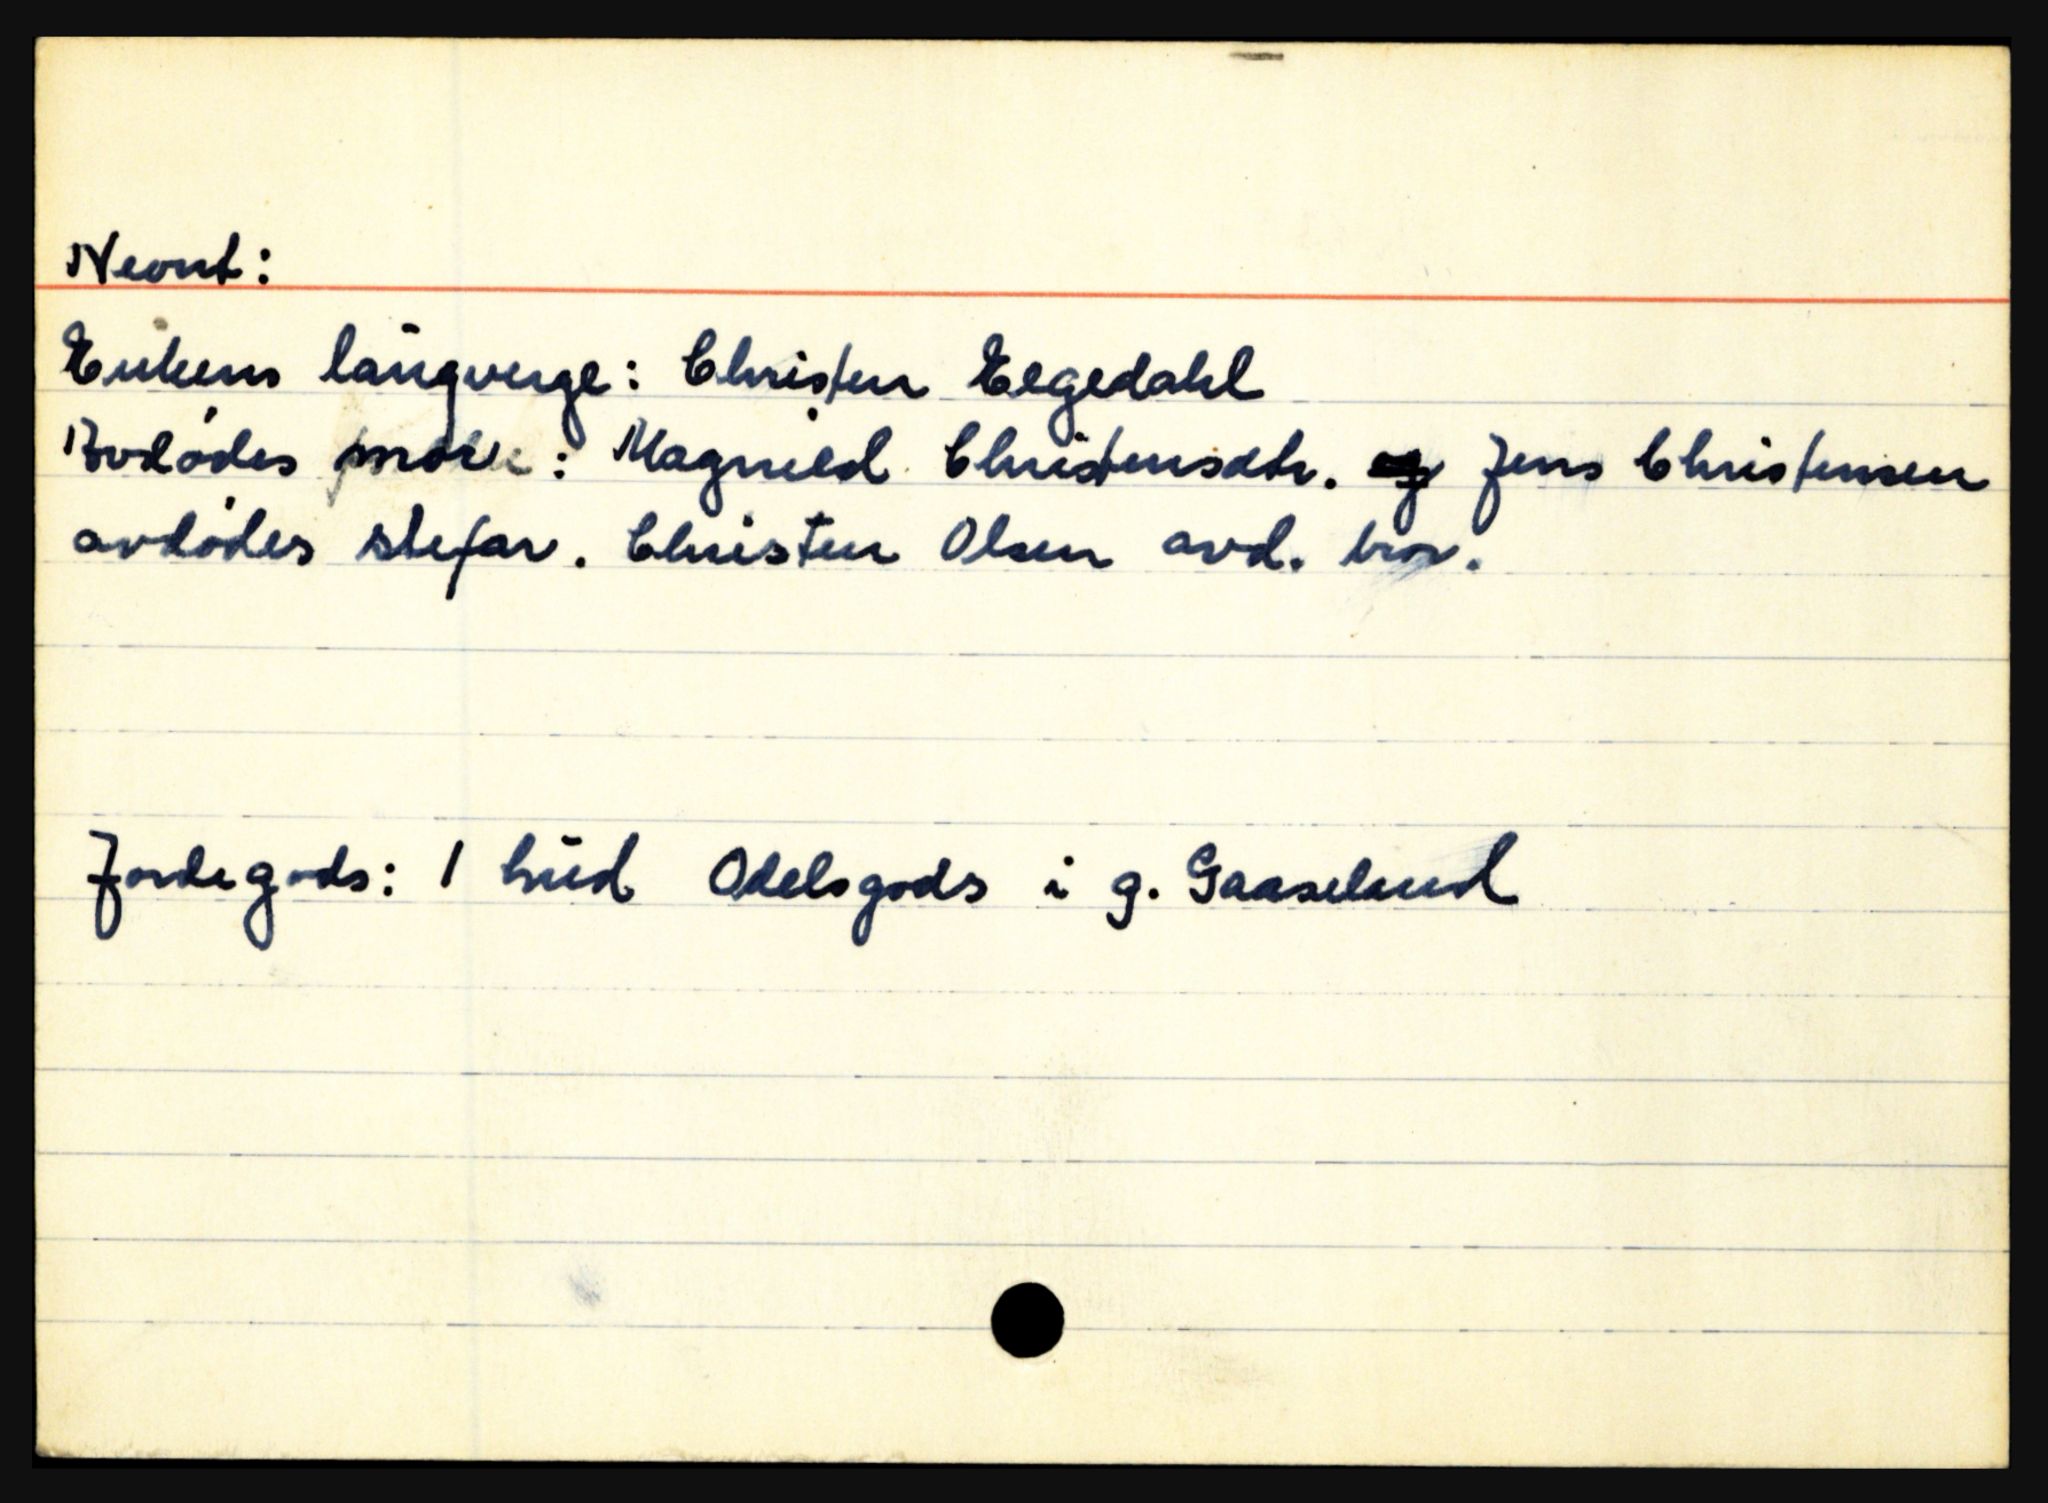 Nevnt:
Enkens laugverge: Christen Elgedahl
Avdødes mor: Magnild Christensdtr. Jens Christensen
avdødes stefar. Christen Olsen avd. bror.
Jordegods: 1 hud Odelsgods i g. Gaaselund